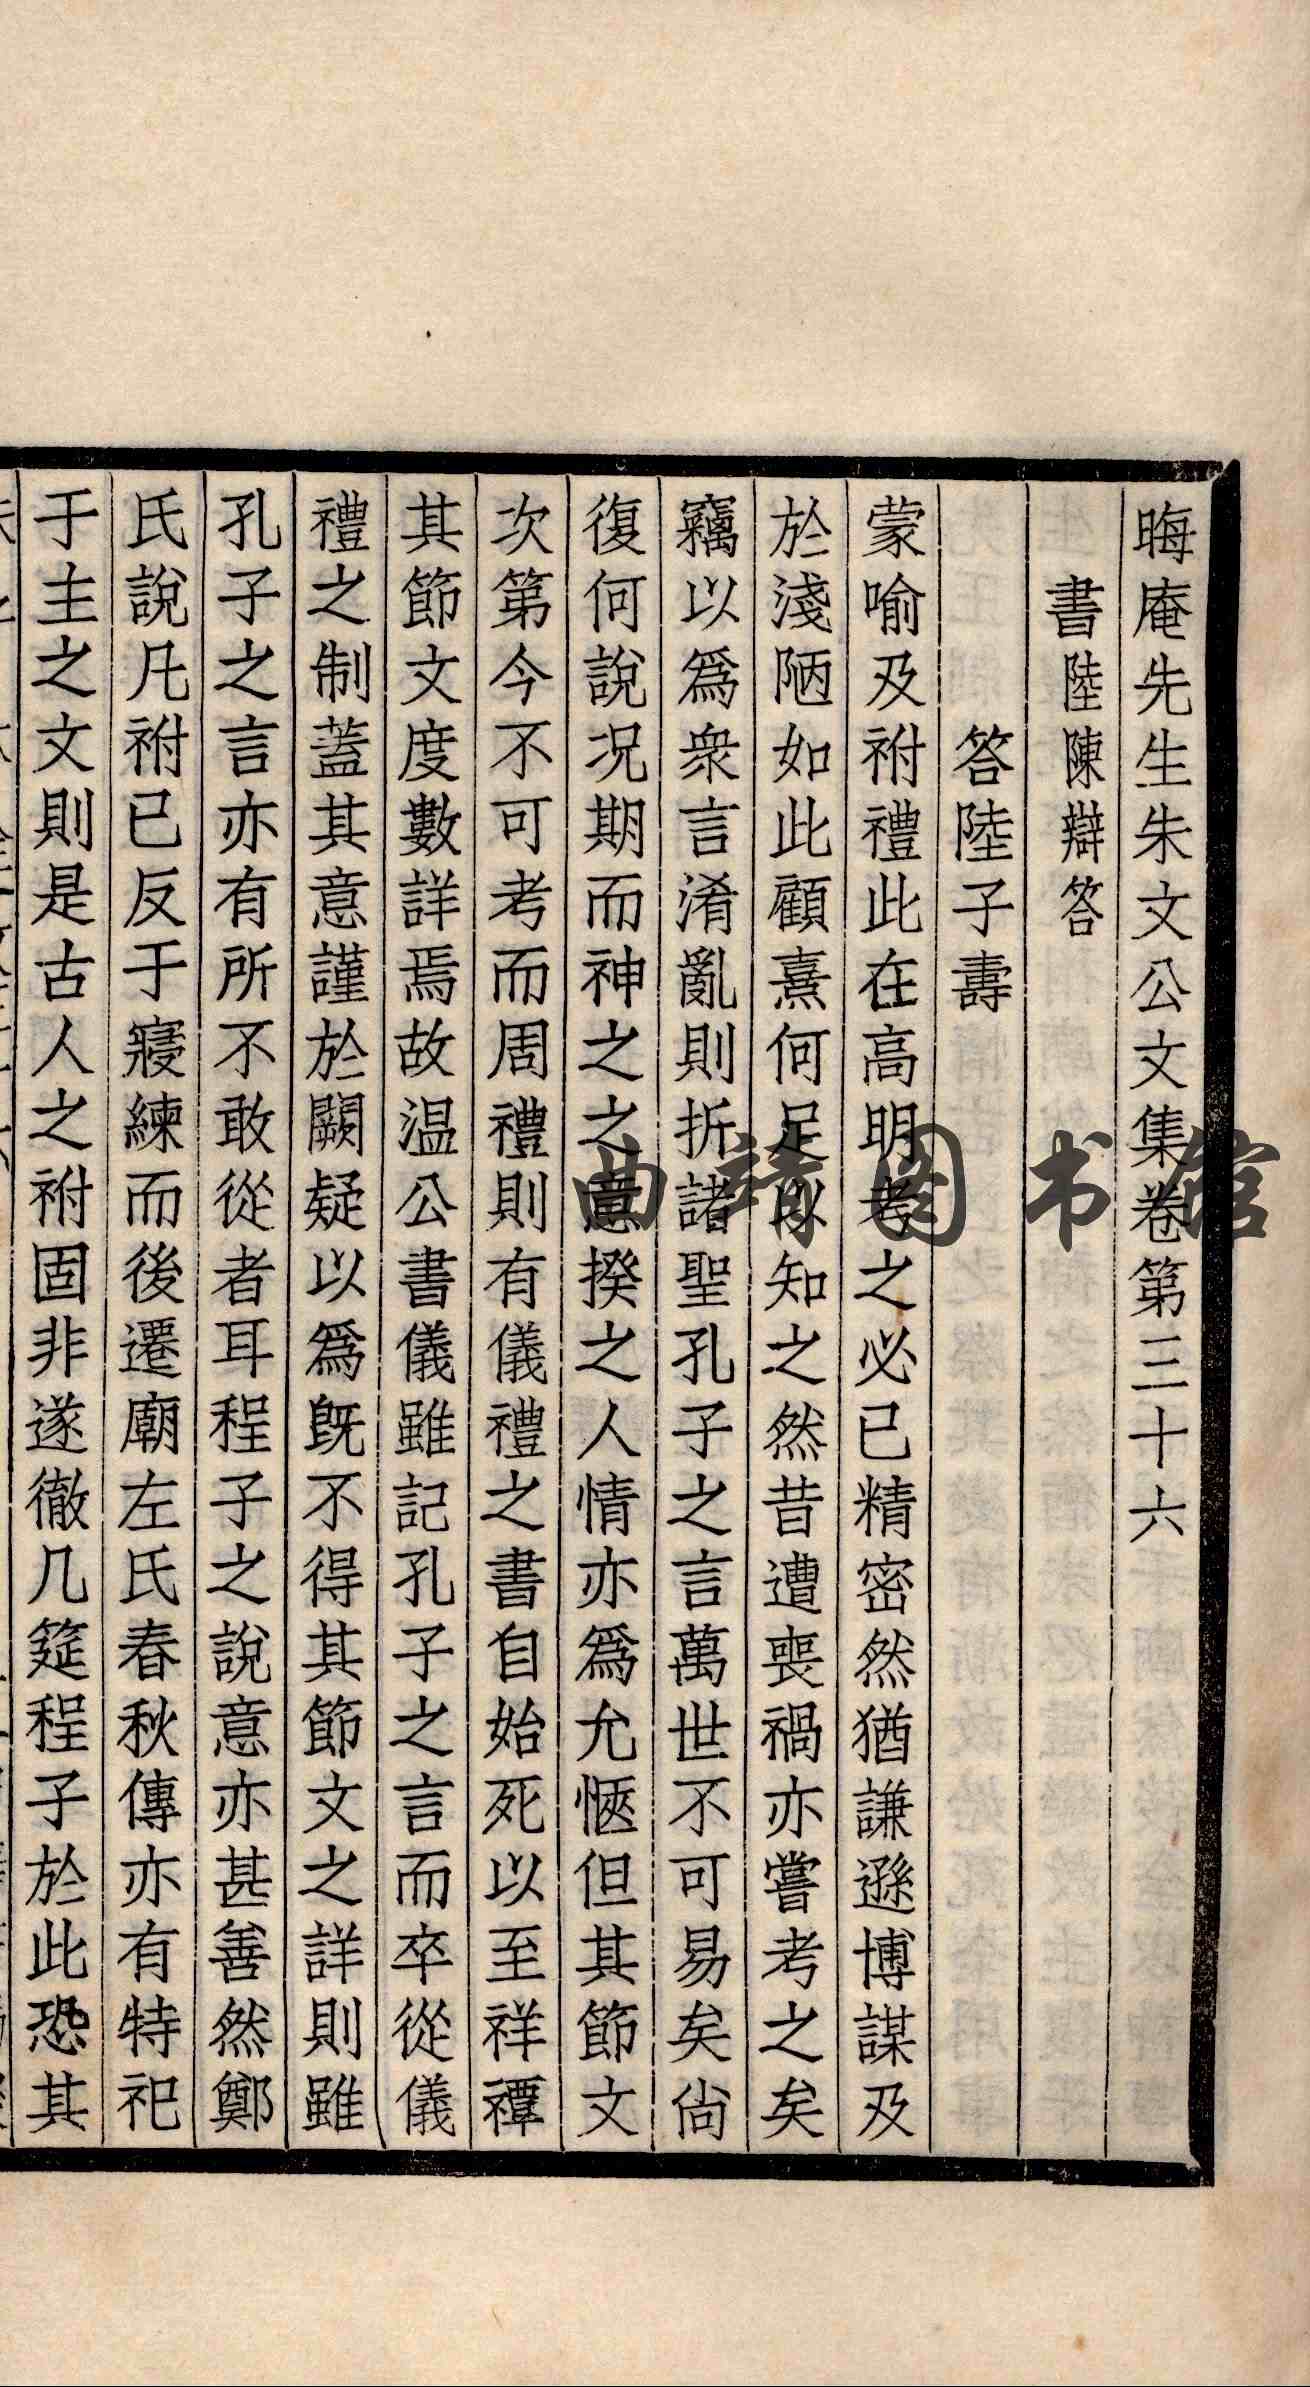 晦庵先生朱文公文集卷第三十六
書陸陳辯答
答陸子壽
蒙喻及祔禮此在高明考之必已精密然猶謙遜博謀及
於淺陋如此顧熹何足以知之然昔遭喪禍亦嘗考之矣
竊以爲衆言淆亂則折諸聖孔子之言萬世不可易矣尚
復何說况期而神之之意揆之人情亦爲允愜但其節文
次第今不可考而周禮則有儀禮之書自始死以至祥禫
其節文度數詳焉故温公書儀雖記孔子之言而卒從儀
禮之制蓋其意謹於闕疑以爲旣不得其節文之詳則雖
孔子之言亦有所不敢從者耳程子之說意亦甚善然鄭
氏說凡祔已反于寢練而後遷廟左氏春秋傳亦有特祀
于主之文則是古人之祔固非遂徹几筵程子於此恐其
曲靖图书馆